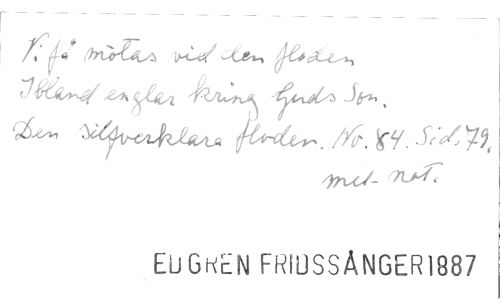 Vi få mötas vid den floden
Ibland englar kring Guds Son.
Den silfverklara floden. No. 84. Sid. 79.
med not.
EDGREN FRIDSSÅNGER 1887